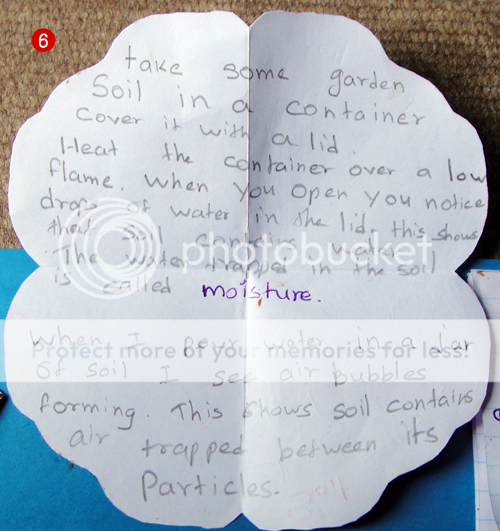 6
take some garden
Soil in a container
cover it with a lid.
Heat the container over a low
flame. When you open you notice
drops of water in the lid, this shows
that soil contains water.
The water trapped in the soil
is called moisture.
When I pour water in a jar
Of soil I see air bubbles
forming. This shows soil contains
air trapped between its
Particles.
photobucket
Protect more of your memories for less!